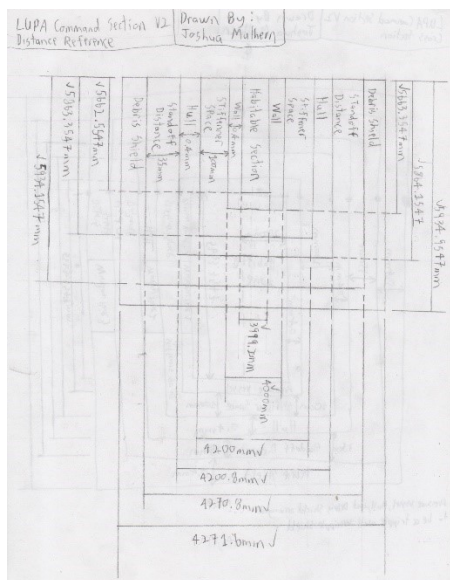 LUPA Command Section V2
Distance Reference
Drawn By:
Joshua Mulhern
√5934.1547mm
√5863.2547mm
√5662.5547mm
Debris Shield
Standoff
Distance
35mm
Hull
0.4mm
Stiffener
Space
Wall
Habitable Section
Wall
Stiffener
Space
Hull
Standoff
Distance
Debris Shield
√5663.3547mm
√5934.9547mm
3999.2mm
4000mm
4200mm√
4200.8mm√
4270.8mm√
4271.6mm√